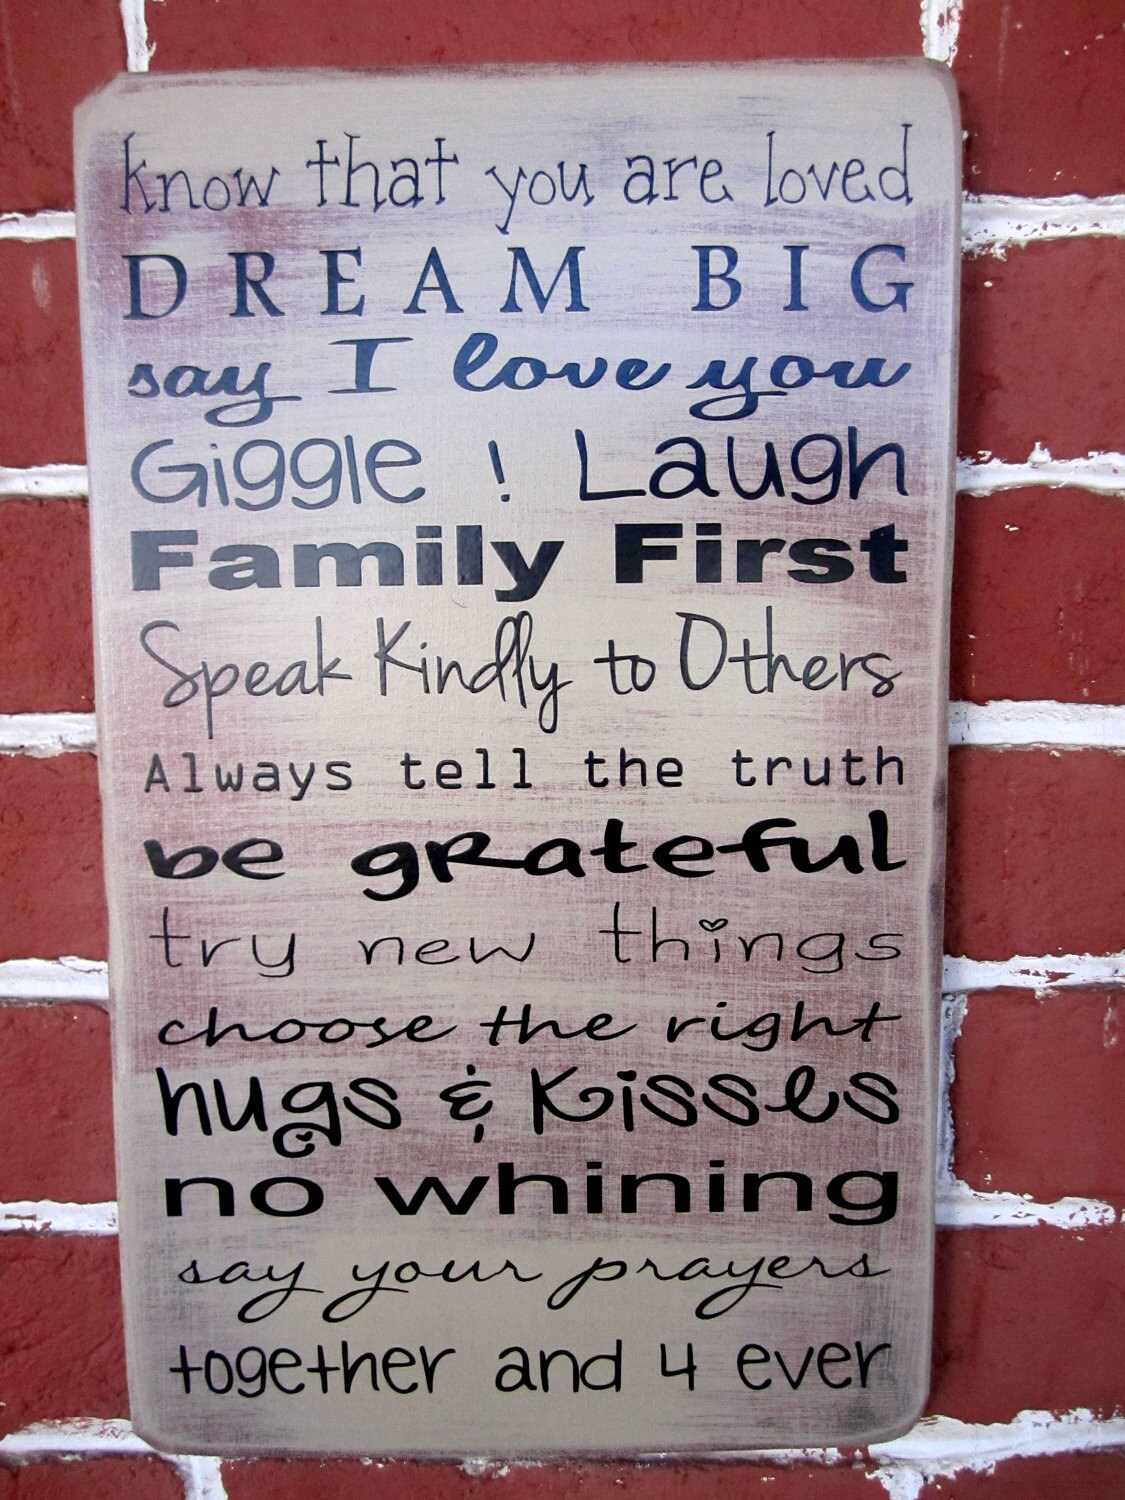 know that you are loved
DREAM BIG
say I love you
Giggle ! Laugh
Family First
Speak Kindly to Others
Always tell the truth
be gRateful
try new things
choose the right
hugs & Kisses
no whining
say your prayers
together and 4 ever